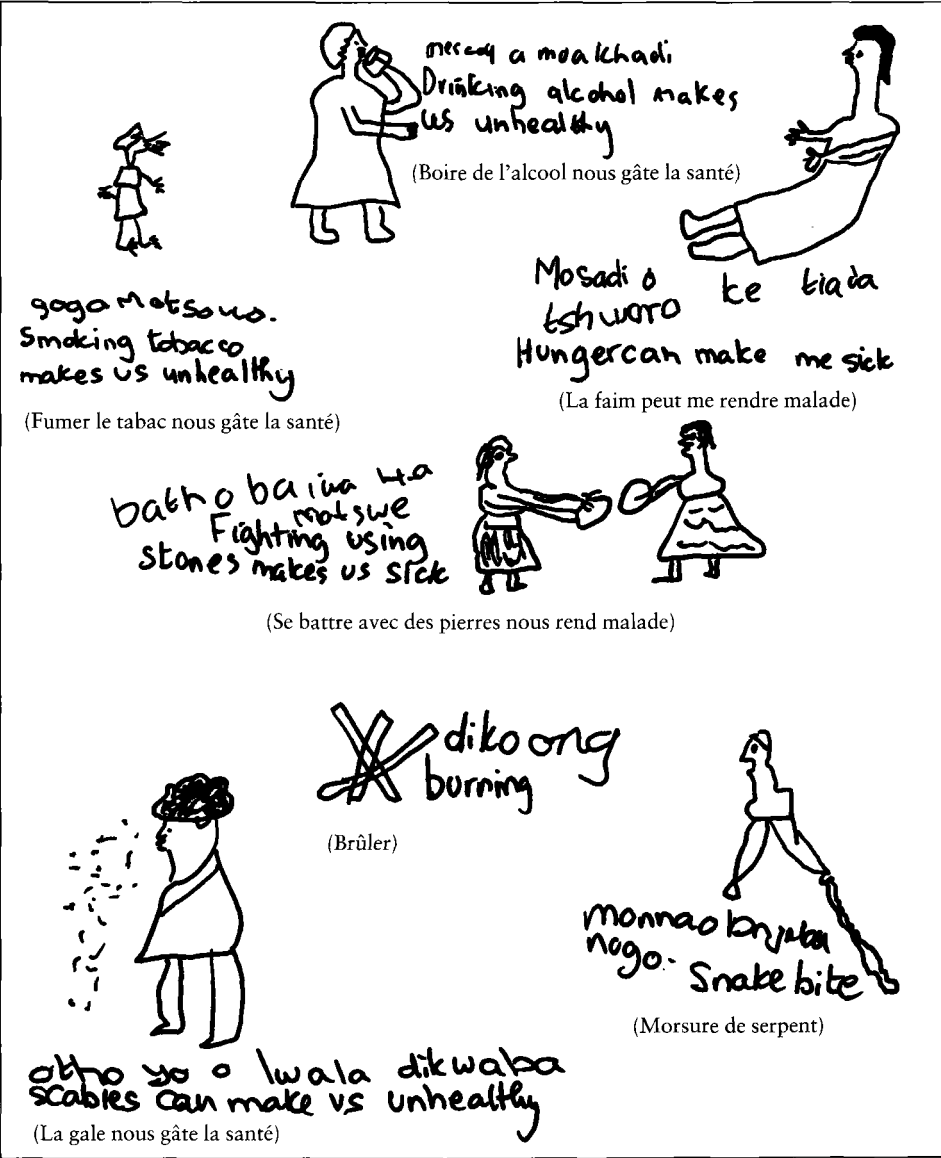 a moakhadi
Drinking alcohol makes
us unhealthy
(Boire de l'alcool nous gâte la santé)
gogo motsoko.
Smoking tobacco
makes us unhealthy
(Fumer le tabac nous gâte la santé)
Mosadi o ke tlada
tshwaro
Hunger can make me sick
(La faim peut me rendre malade)
batho ba lwa
matswe
Fighting using
stones makes us sick
(Se battre avec des pierres nous rend malade)
dikoong
burning
(Brûler)
monna o
nogo.
Snake bite
(Morsure de serpent)
otho yo o lwala dikwaba
scabies can make us unhealthy
(La gale nous gâte la santé)